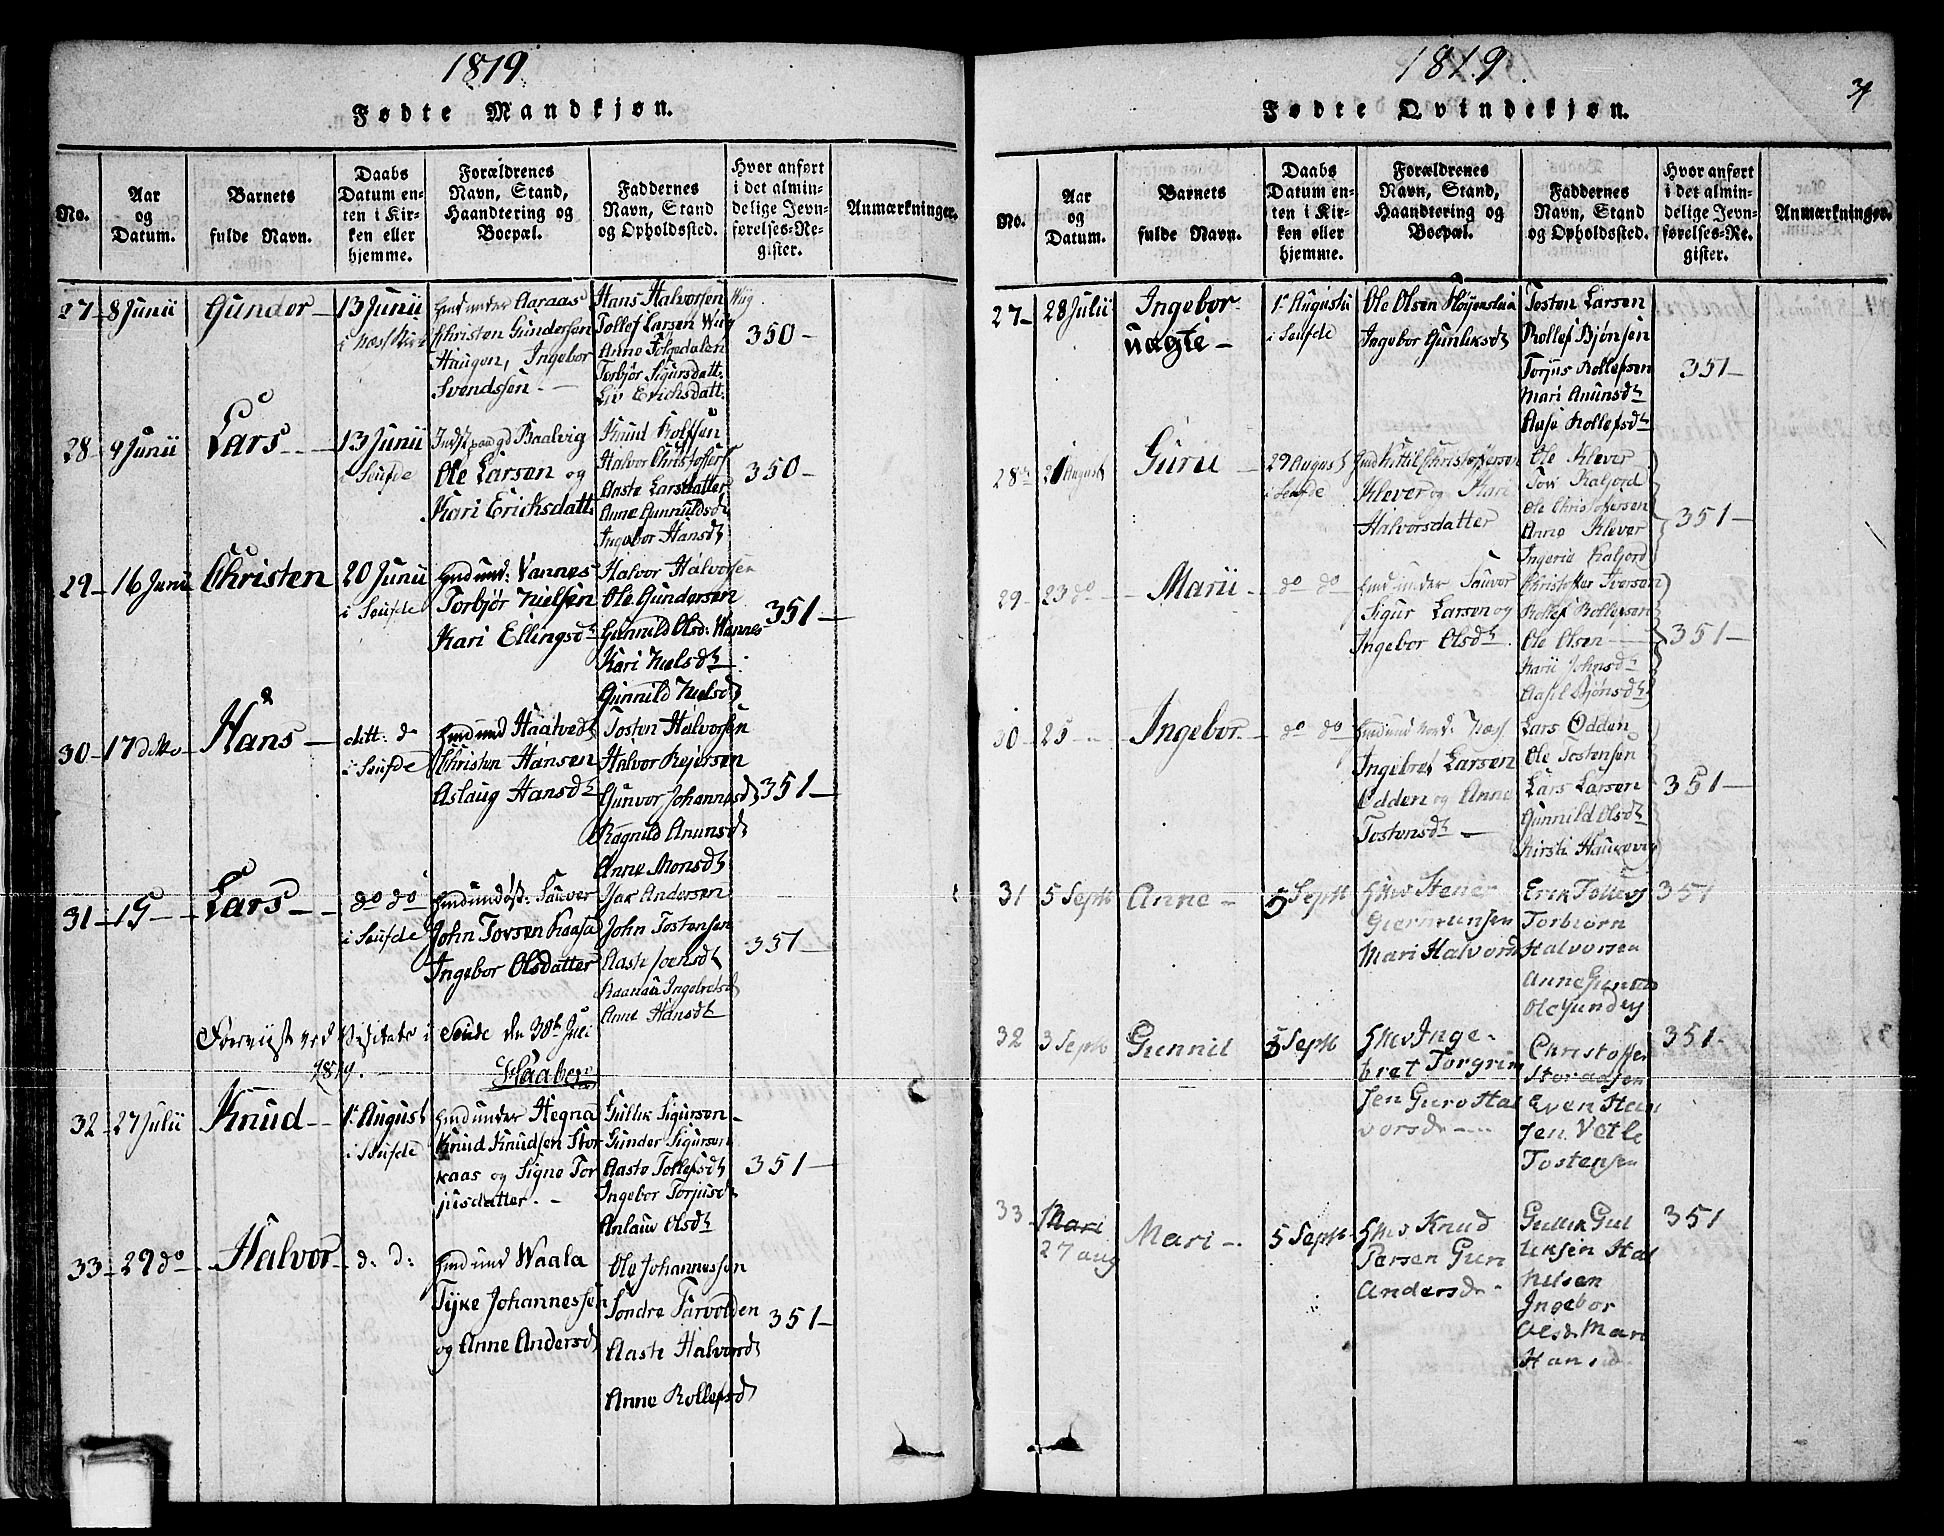 1819
Fødte Mandkjøn.
No.
Aar
og
Datum.
Barnets
fulde Navn.
Daabs
Datum en-
ten i Kir-
ken eller
hjemme.
Forældrenes
Navn, Stand,
Haandtering og
Boepæl.
Faddernes
Navn, Stand
og Opholdssted.
Hvor anført
i det almin-
delige Jevn-
førelses-Re-
gister.
Anmærkninger.
27 - 8 Junii
Gunder -
13 Junii
Aaraas
Christen Gundersen
Haugen, Ingebor
Svendssen -
Hans Halvorsen
Tollef Larsen
Anne Folgedalen
Torbjør Sigursdatt.
Liv Ericksdatt.
350 -
28 - 9 Junii
Lars -
13 Junii
i Seufde
Baalvig
Ole Larsen og
Kari Ericksdatt.
Knud Rolfsen
Halvor Christoffers
Aaste Larsdatter
Anne Gunnuldsd
Ingebor Hansdt
350 -
29 - 16 Junii
Christen
20 Junii
i Seufde
Vannes
Torbjør Nielsen
Kari Ellingsdt
Halvor Halvorsen
Ole Gundersen
Gunnild Olsd: Wannes
Kari Nielsdt
Gunnild Nielsdt
351 -
30 - 17 ditto
Hans -
ditt: d
i Seufde
Haatvedt
Christen Hansen
Aslaug Hansdt
Tosten Halvorsen
Halvor Rejersen
Gunvor Johannesd
Ragnild Anunsdt
Anne Monsdt
351 -
31 - 15 -
Lars -
do do
i Seufde
Sauver
John Torsen Kaasa
Ingebor Olsdatter
Andersen
John Tostensen
Aaste Joensdt
Ingebretsd
Anne Hansdt
351 -
Foreviist ved Visitats i Seude den
1819.
Flaaben
32 - 27 Julii
Knud -
1 August
i Seufde
Hegna
Knud Knudsen Stor
kaas og Signe Tor
jusdatter. -
Gullik Sigursen
Gunder Sigursen
Aaste Tollefsdt
Ingebor Torjusd
Anlaug Olsdt
351 -
33 - 29 do
Halvor -
d: d:
Waala
Tyke Johannessen
og Anne Andersd
Ole Johannessen
Sondre Tarvolden
Aaste Halvorsd
Anne Rollefsd
351 -
1819.
Fødte Qvindekjøn.
No.
Aar
og
Datum.
Barnets
fulde Navn.
Daabs
Datum en-
ten i Kir-
ken eller
hjemme.
Forældrenes
Navn, Stand,
Haandtering og
Boepæl.
Faddernes
Navn, Stand
og Opholdssted.
Hvor anført
i det almin-
delige Jevn-
førelses-Re-
gister.
Anmærkninger.
27 - 28 Julii
Ingebor
uægte -
1 Augusti
i Seufde
Ole Olsen
Ingebor Gunliksdt
Tosten Larsen
Rollef Bjønsen
Torjus Rollefsen
Mari Anunsdt
Aase Rollefsdt
351 -
28 - 21 August
Guru -
29 August
i Seufde
Kittil Christoffersen
Klever og Kari
Halvorsdatter
Ole Klever
Tovi Kafjord
Ole Christoffersen
Anne Klever
Ingerie Kafjord
351 -
29 - 23 do
- Marii -
do do
Sauver
Sigur Larsen og
Ingebor Olsdt
Christoffer Iversen
Rollef Rollefsen
Ole Olsen
Karii Johnsdt
Aasil Bjønsdt
351 -
30 - 25 -
- Ingebor -
do do
Næs
Ingebret Larsen
Odden og Anne
Tostensdt -
Lars Odden
Ole Tostensen
Lars Larsen
Gunnild Olsdt
Kirsti Haukevig
351 -
31 5 Septb
Anne -
5 Septb
Stener
Giermunsen
Mari Halvorsd
Erik Tollefs
Torbiørn
Halvorsen
Anne
Ole Gunders
351
32 3 Septb
Gunnil
5 Septb
Inge-
bret Torgrim
sen Guro Hal
vorsdr -
Christoffer
Even Han
sen. Vetle
Tostensen
351 -
33 Mari
27 aug
Mari -
5 Septb
Knud
Persen Gun
Andersdr -
Gullik Gul
liksen Hal
Nilsen
Ingebor
Olsdr Mari
Hansd
351